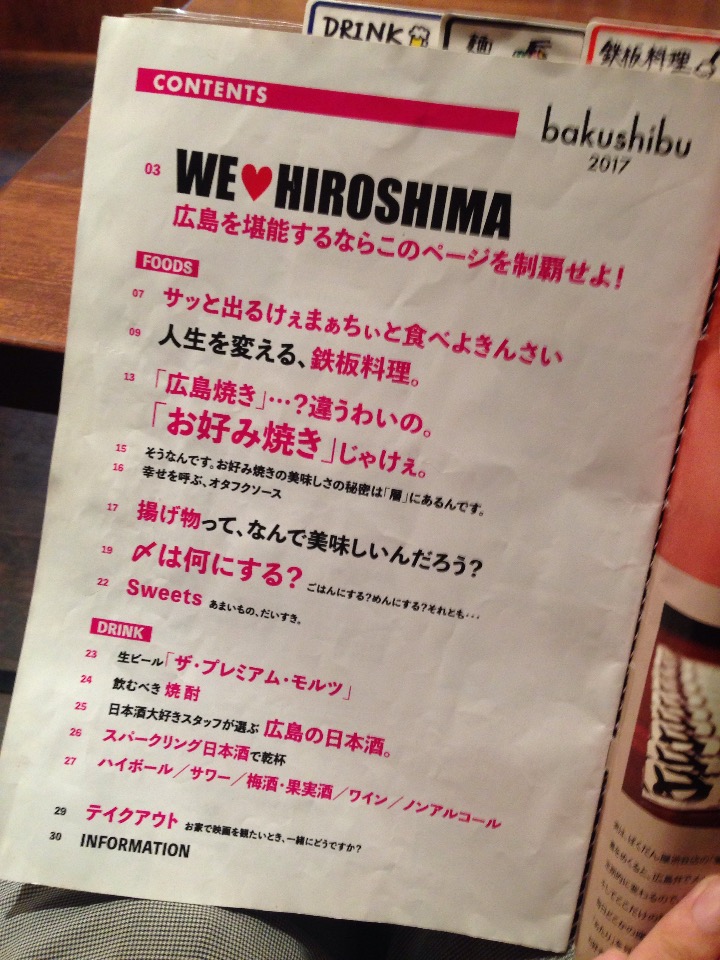 DRINK
麺
鉄板料理
CONTENTS
bakushibu
2017
03 WE♥HIROSHIMA
広島を堪能するならこのページを制覇せよ!
FOODS
07 サッと出るけぇまぁちぃと食べよきんさい
09 人生を変える、鉄板料理。
13 「広島焼き」…?違うわいの。
「お好み焼き」じゃけぇ。
15 そうなんです。お好み焼きの美味しさの秘密は「層」にあるんです。
16 幸せを呼ぶ、オタフクソース
17 揚げ物って、なんで美味しいんだろう?
19 〆は何にする? ごはんにする?めんにする?それとも・・・
22 Sweets あまいもの、だいすき。
DRINK
23 生ビール「ザ・プレミアム・モルツ」
24 飲むべき焼酎
25 日本酒大好きスタッフが選ぶ 広島の日本酒。
26 スパークリング日本酒で乾杯
27 ハイボール/サワー/梅酒・果実酒/ワイン/ノンアルコール
29 テイクアウト お家で映画を観たいとき、一緒にどうですか?
30 INFORMATION